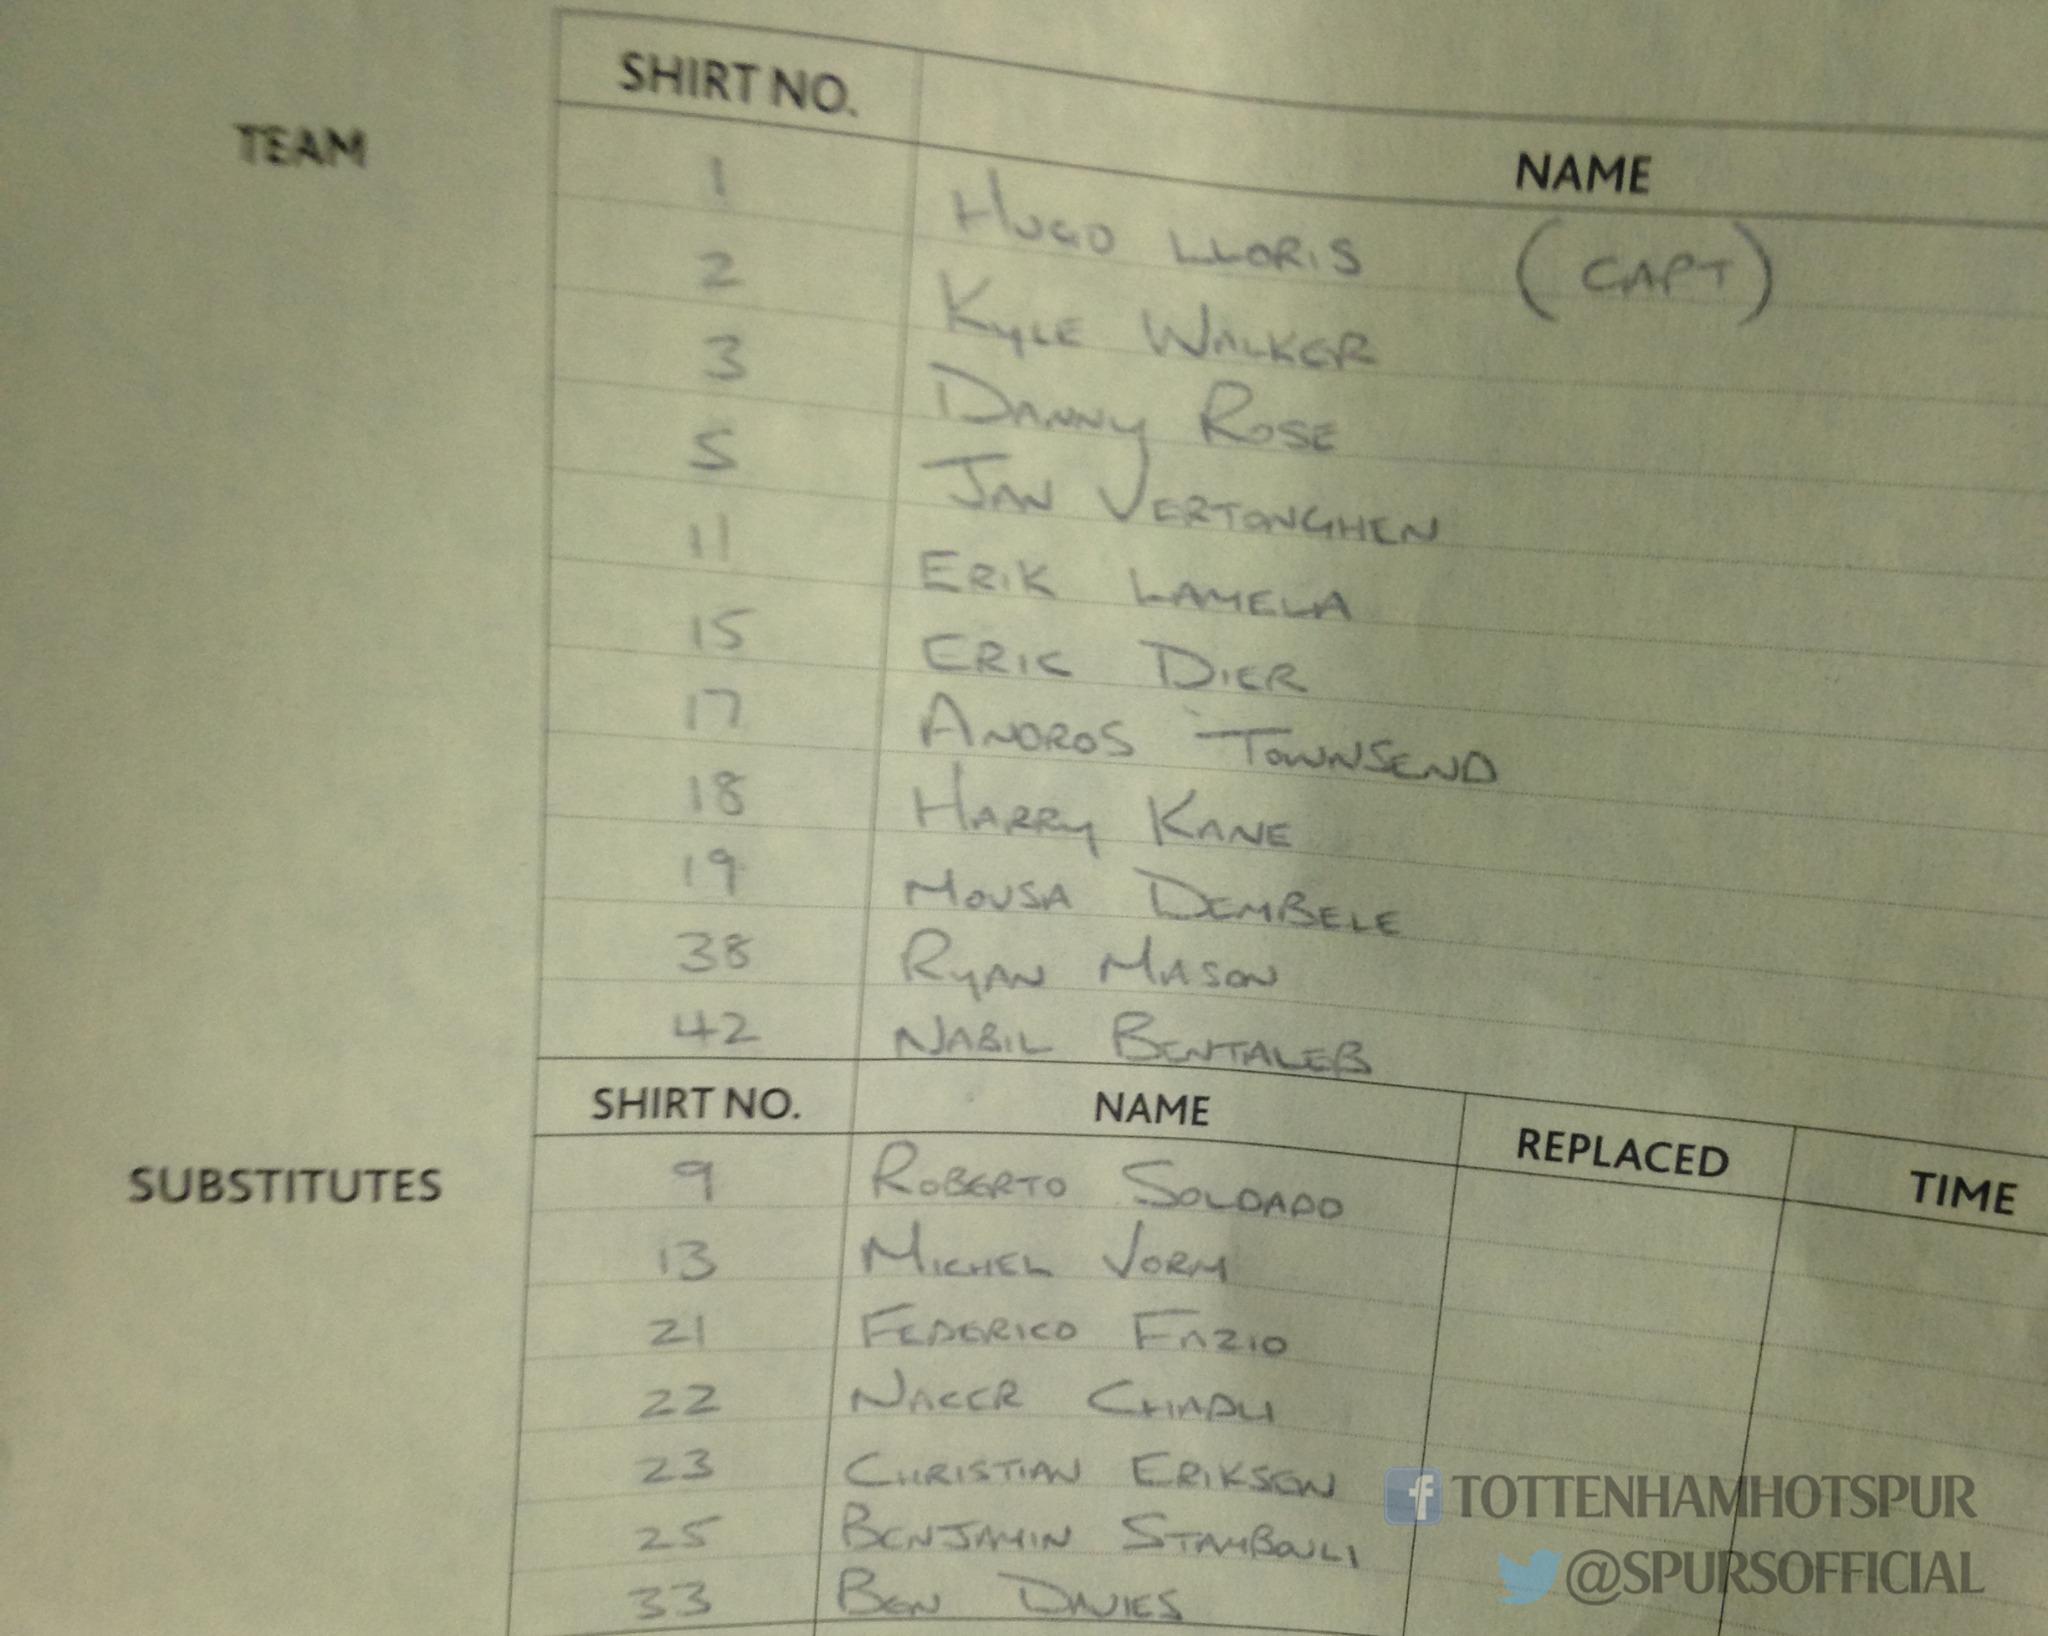 SHIRT NO. NAME
TEAM
1 HUGO LLORIS (CAPT)
2 KYLE WALKER
3 DANNY ROSE
5 JAN VERTONGHEN
11 ERIK LAMELA
15 ERIC DIER
17 ANDROS TOWNSEND
18 HARRY KANE
19 MOUSA DEMBELE
38 RYAN MASON
42 NABIL BENTALEB
SHIRT NO. NAME REPLACED TIME
SUBSTITUTES
9 ROBERTO SOLDADO
13 MICHEL VORM
21 FEDERICO FAZIO
22 NACER CHADLI
23 CHRISTIAN ERIKSEN
25 BENJAMIN STAMBOULI
33 BEN DAVIES
f TOTTENHAMHOTSPUR
@SPURSOFFICIAL